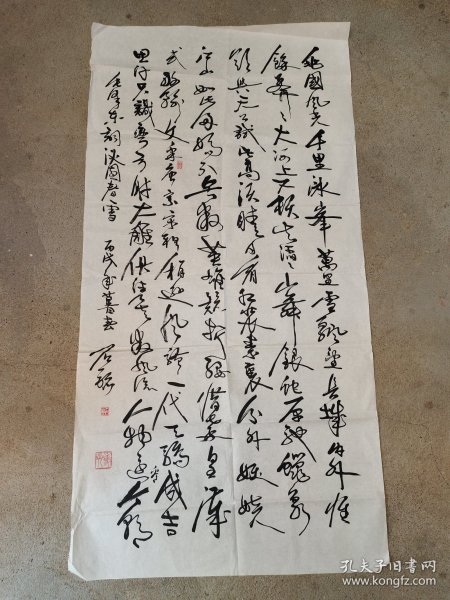 北國風光千里冰峰萬里雪飄望長城內外惟
餘莽々大河上下頓失滔山舞銀蛇原馳蠟象
欲與天公試比高須晴日看紅裝素裹分外妖嬈
江山如此多嬌引無數英雄競折腰惜秦皇漢
武略輸文采唐宗宋祖稍遜風騷一代天驕成吉
思汗只識彎弓射大雕俱往矣數風流人物還看今朝
毛澤東詞沁園春雪 丙戌年 書 石
孔夫子旧书网
www.kongfz.com